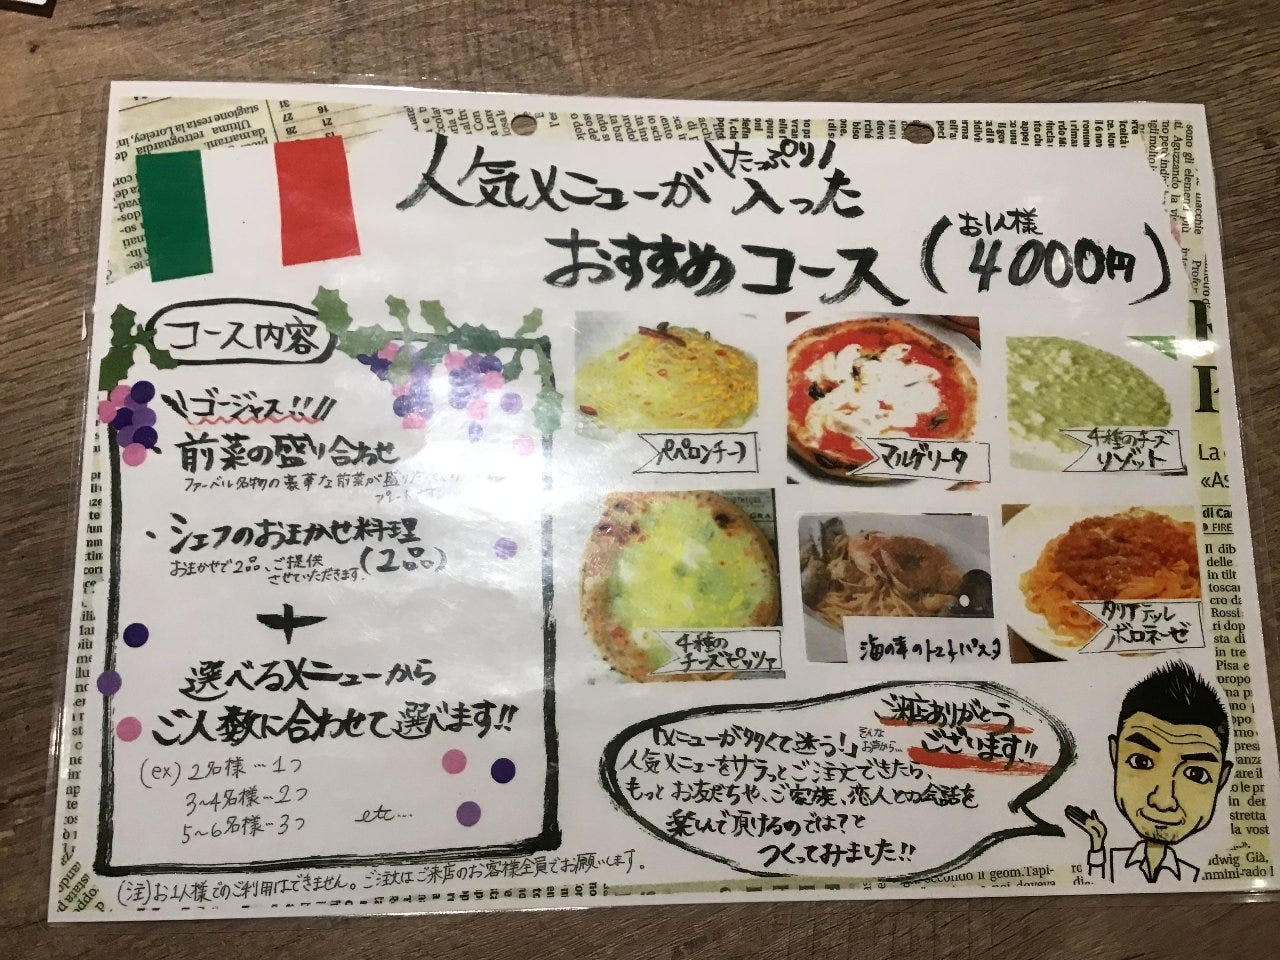 人気メニューが\たっぷり/入った
おすすめコース(お1人様 4000円)
コース内容
\\ゴージャス!!//
・前菜の盛り合わせ
ファーベル名物の豪華な前菜が
・シェフのおまかせ料理
(2品)
おまかせで2品、ご提供
させていただきます。
+
選べるメニューから
ご人数に合わせて選べます!!
(ex) 2名様…1つ
3~4名様…2つ
5~6名様…3つ
etc...
(注)お1人様でのご利用はできません。ご注文はご来店のお客様全員でお願いします。
ペペロンチーノ
マルゲリータ
4種のチーズ
リゾット
4種の
チーズピッツァ
海の幸のトマトパスタ
タリアテッレ
ボロネーゼ
ご来店ありがとう
ございます!!
「メニューが多くて迷う!」そんな
お声から…
人気メニューをサラっとご注文できたら、
もっとお友だちや、ご家族、恋人との会話を
楽しんで頂けるのでは?と
つくってみました!!